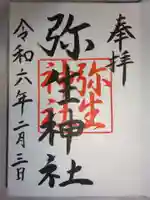 奉拝
弥生神社
弥生神社
令和六年二月三日